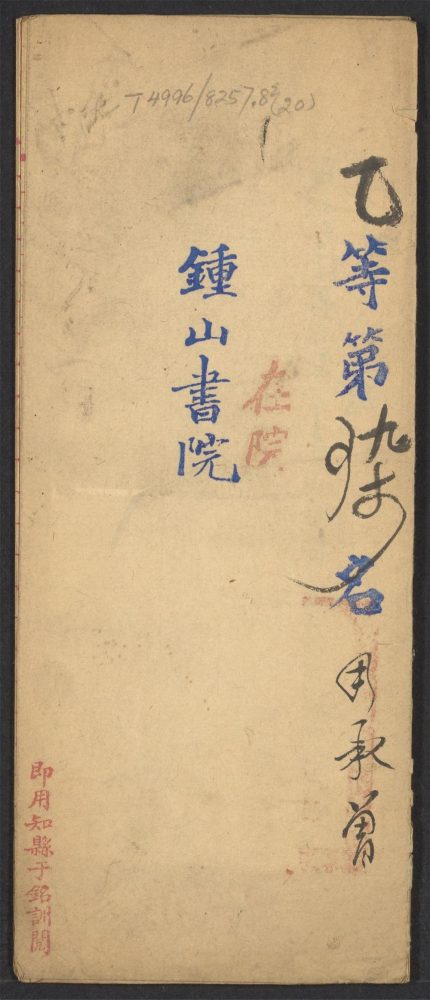 T4996/8257.82(20)
乙等第柒名 周承曾
在院
鍾山書院
即用知縣于銘訓閱